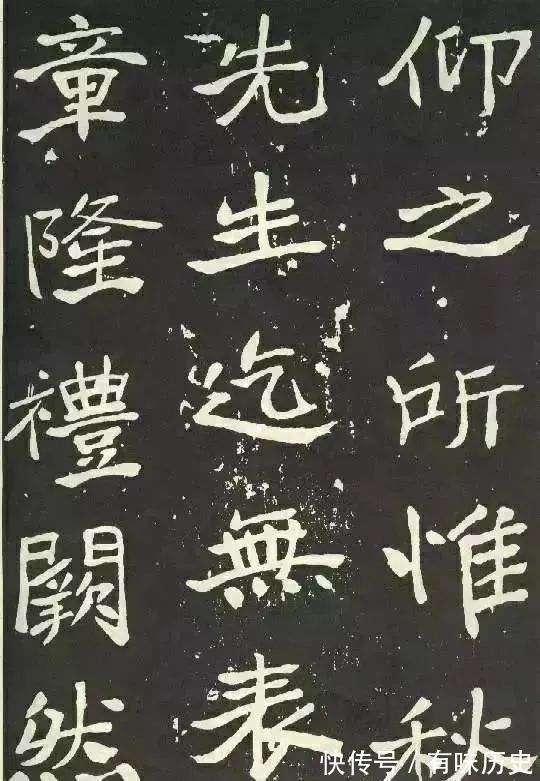 仰之所惟秋
先生迄無表
章隆禮闕然
快传号/有味历史